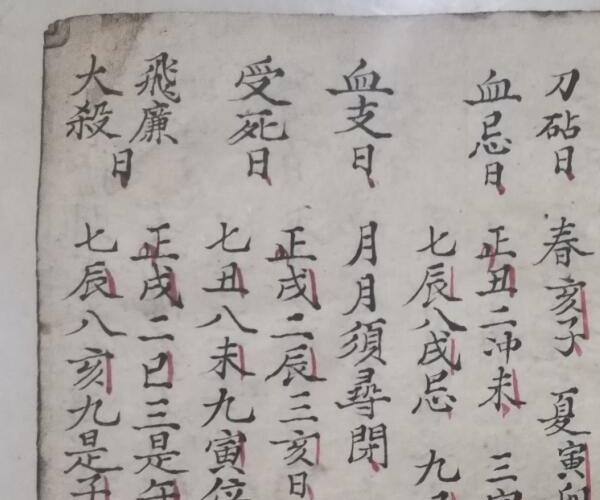 刀砧日 春亥子 夏寅卯
血忌日 正丑二冲未 三寅
七辰八戌忌 九
血支日 月月須尋閉
受死日 正戌二辰三亥日
七丑八未九寅
飛廉大殺日 正戌二巳三是午
七辰八亥九是子